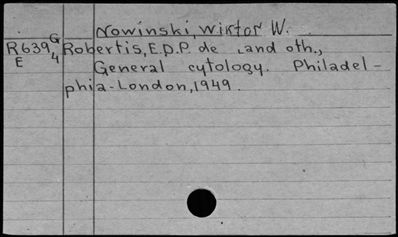 Nowinski, Wiktor W.
R639 G4 Robertis, E.D.P. de and oth.,
E General cytology. Philadel-
phia-London, 1949.